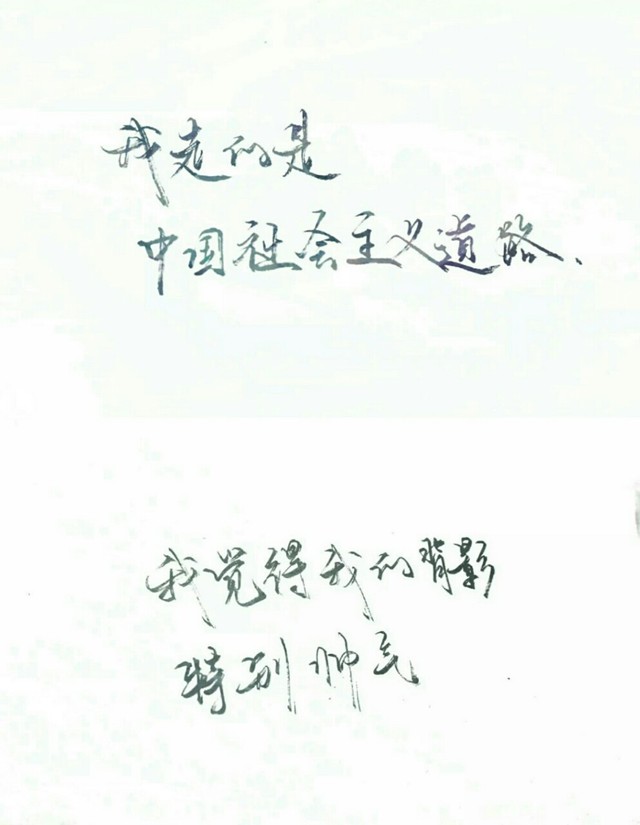 我走的是
中国社会主义道路、
我觉得我的背影
特别帅气